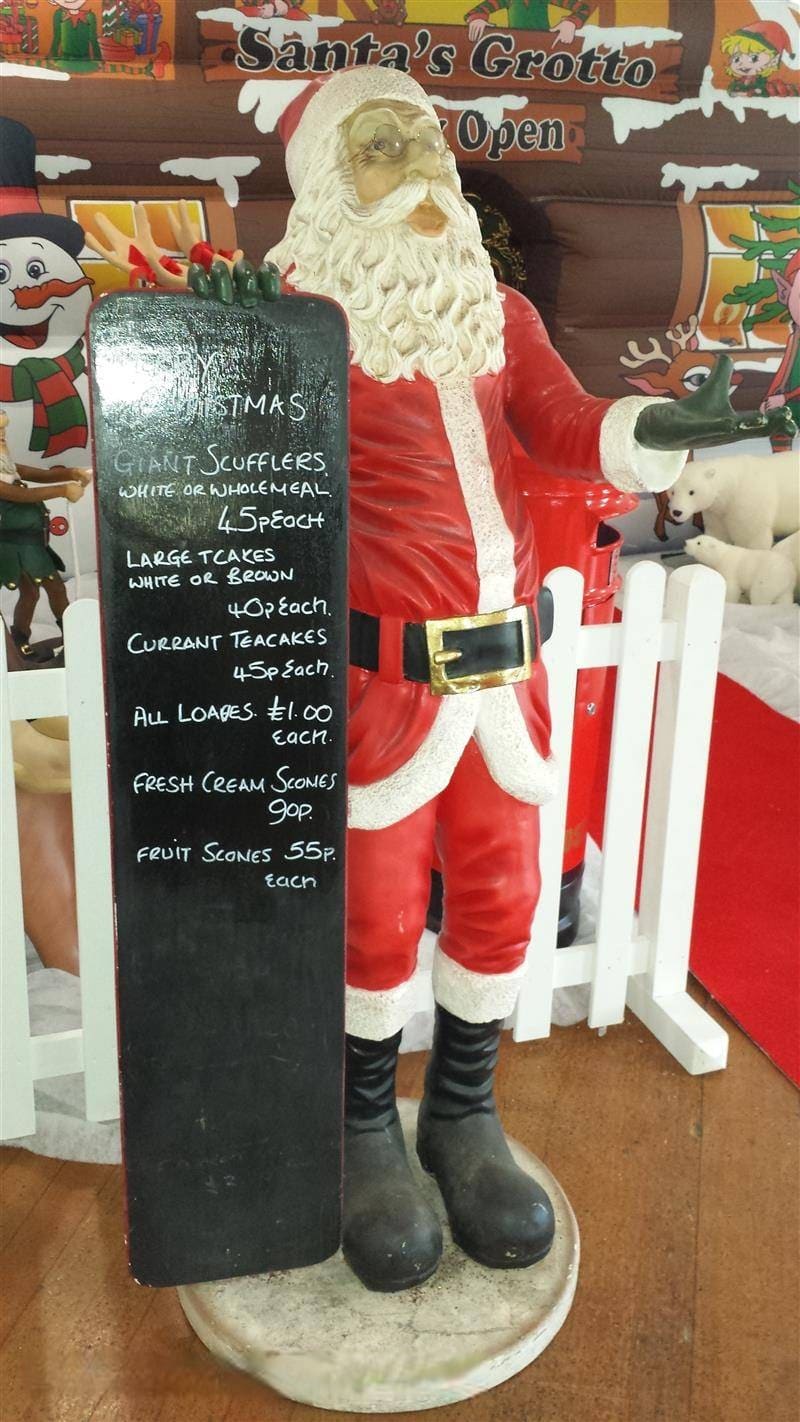 Santa's Grotto
Open
Y
STMAS
GIANT SCUFFLERS
WHITE OR WHOLEMEAL
45pEACH
LARGE TCAKES
WHITE OR BROWN
40pEach.
CURRANT TEACAKES
45pEach.
ALL LOAVES. £1.00
Each.
FRESH CREAM SCONES
90P.
FRUIT SCONES 55P.
Each